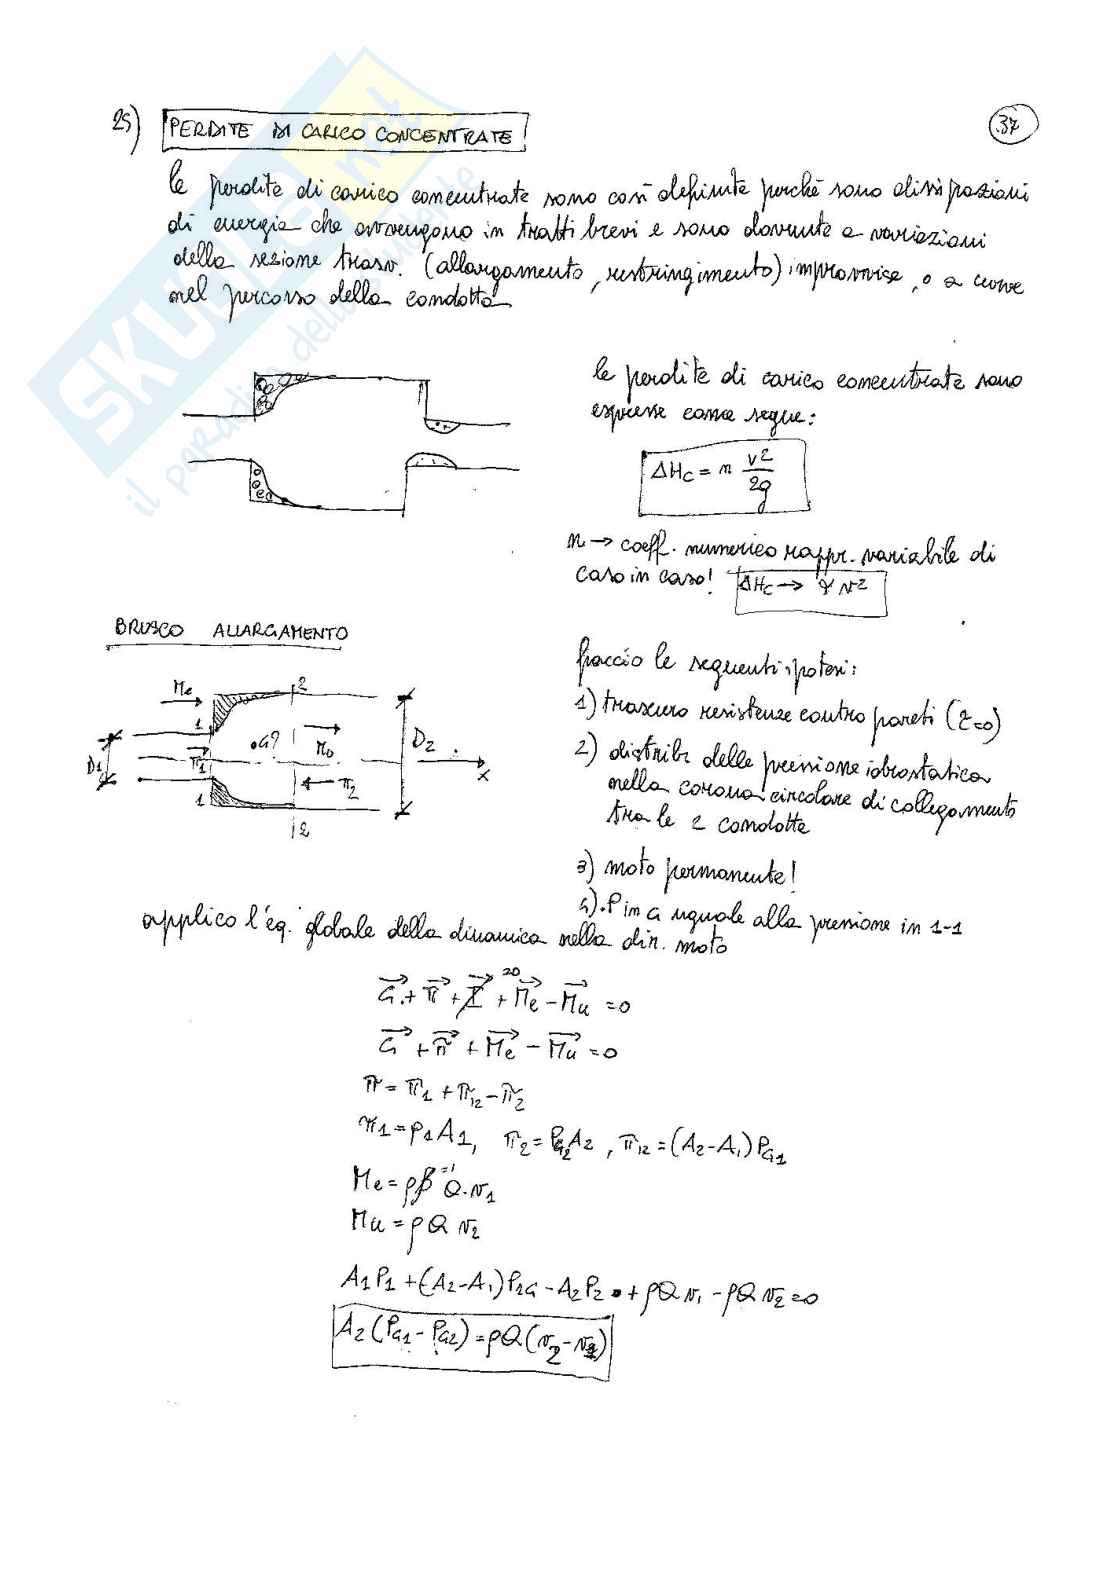 25) PERDITE DI CARICO CONCENTRATE
37
le perdite di carico concentrate sono così definite perchè sono dissipazioni
di energia che avvengono in tratti brevi e sono dovute a variazioni
della sezione trasv. (allargamento, restringimento) improvvise, o a curve
nel percorso della condotta
le perdite di carico concentrate sono
espresse come segue:
ΔHc = n v²/2g
n → coeff. numerico rappr. variabile di
caso in caso! ΔHc → v²
BRUSCO ALLARGAMENTO
Me
2
1
.G?
M0
D2
D1
π1
π2
x
1
2
faccio le seguenti ipotesi:
1) trascuro resistenze contro pareti (τ=0)
2) distrib. delle pressione idrostatica
nella corona circolare di collegamento
tra le 2 condotte
3) moto permanente!
4). P in G uguale alla pressione in 1-1
applico l'eq. globale della dinamica nella dir. moto
G + π + I + Me - Mu = 0
G + π + Me - Mu = 0
π = π1 + π12 - π2
π1 = P1A1, π2 = PG2A2, π12 = (A2-A1)PG1
Me = ρβ=1 Q.v1
Mu = ρQ v2
A1P1 + (A2-A1)P1G - A2P2 + ρQv1 - ρQv2=0
A2(PG1 - PG2) = ρQ(v2-v1)
SKUOLA.net
il paradiso dello studente